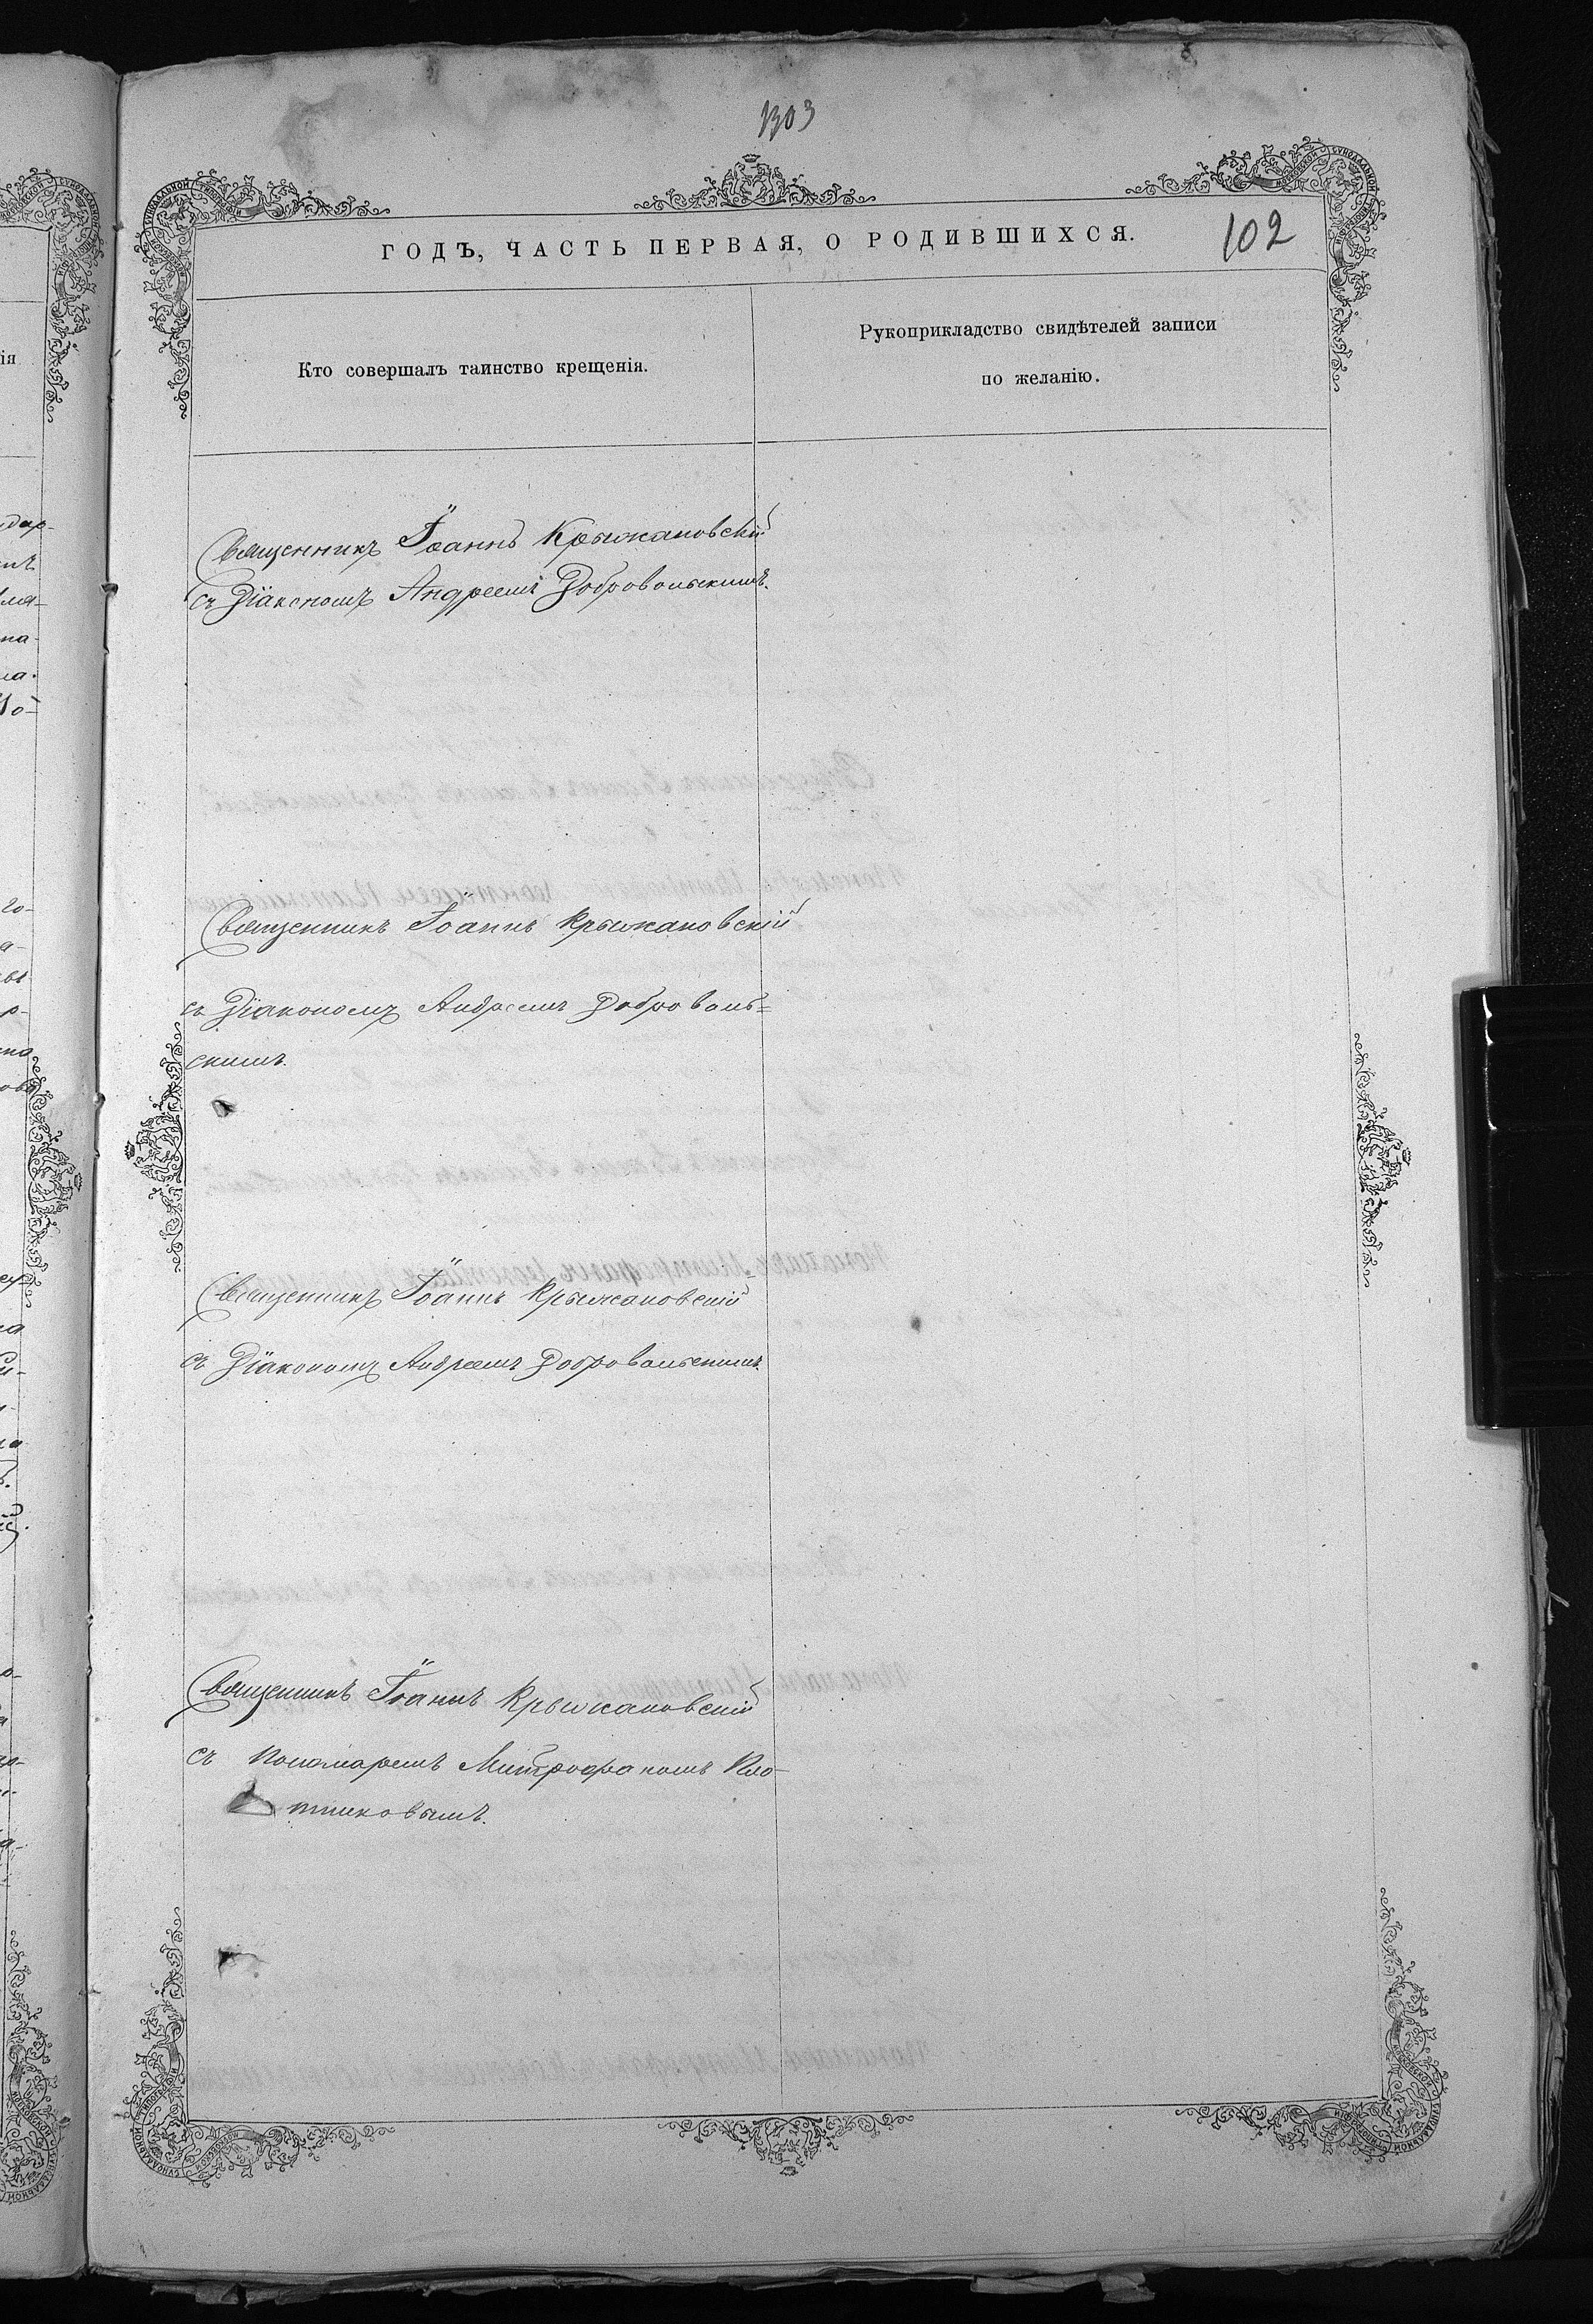 1303
102
ГОДЪ, ЧАСТЬ ПЕРВАЯ, О РОДИВШИХСЯ.
Кто совершалъ таинство крещенія.
Рукоприкладство свидѣтелей записи
по желанію.
Священникъ Іоаннъ Крыжановскій
съ Діакономъ Андреемъ Добровольскимъ.
Священникъ Іоаннъ Крыжановскій
съ Діакономъ Андреемъ Доброволь=
скимъ.
Священникъ Іоаннъ Крыжановскій
съ Діакономъ Андреемъ Добровольскимъ.
Священникъ Іоаннъ Крыжановскій
съ Пономаремъ Митрофаномъ